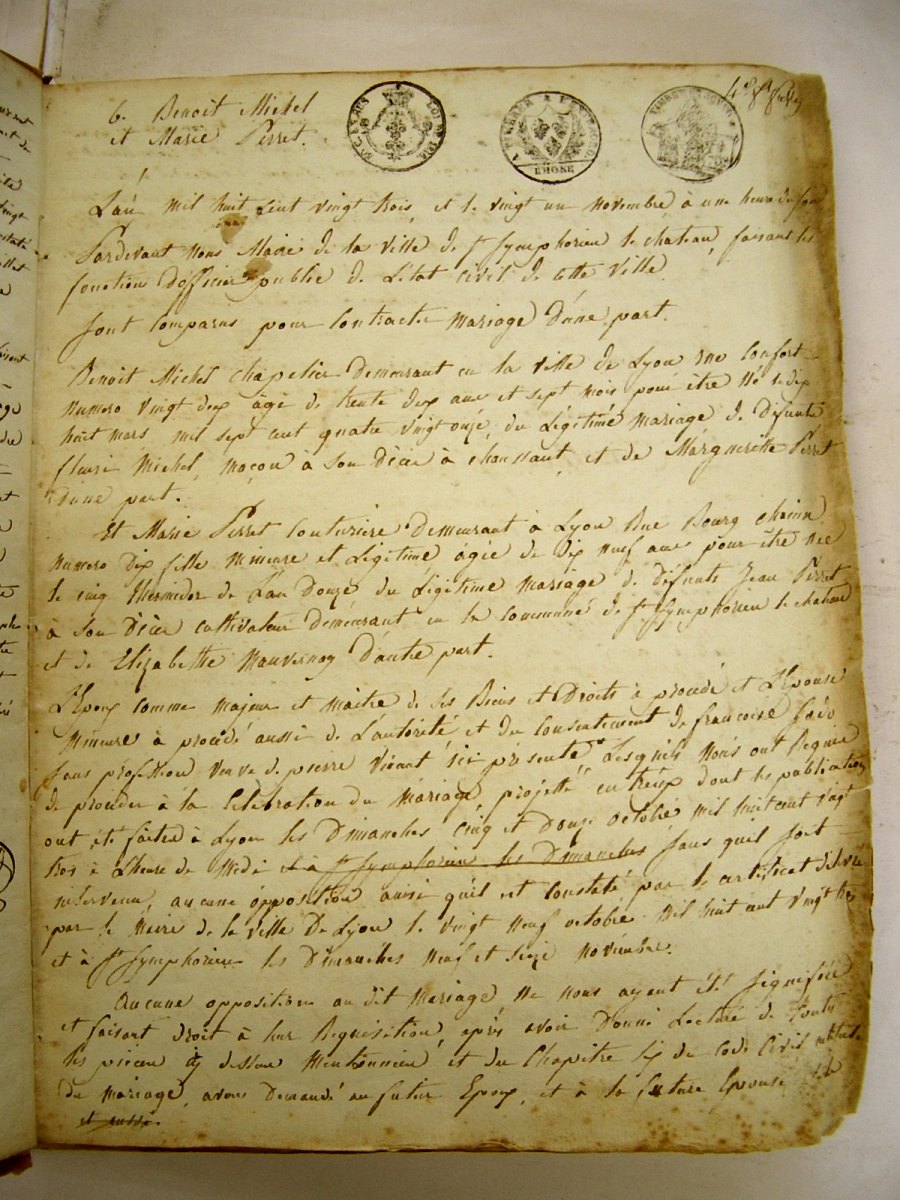 6. Benoit Michel
et Marie Perret.
L'an mil huit cent vingt trois, et le vingt un novembre à une heure du soir
Pardevant nous Maire de la ville de St Symphorien le chateau, faisant les
fonction d'officier public de L'état civil de cette ville
sont comparus pour contracter mariage d'une part.
Benoit Michel chapelier demeurant en la ville de Lyon rue Confort
numero vingt deux âgé de trente deux ans et sept mois pour être né le dix
huit mars mil sept cent quatre vingt onze, du Légitime mariage de défunts
fleurie Michel, maçon à son décès à chaussant, et de Marguerite Perret
d'une part.
Et Marie Perret couturière demeurant à Lyon Rue Bourg chanin
numero dix fille mineure et Légitime agée de dix neuf ans pour être née
le cinq thermidor de L'an Douze du Légitime mariage de défunts Jean Perret
à son décès cultivateur demeurant en la commune de St Symphorien le chateau
et de Elizabethe Mauvernoy d'autre part.
L'Epoux comme majeur et maitre de ses Biens et Droits à procédé et L'Epouse
Mineure à procédé aussi de L'autorité et du consentement de francoise
sans profession veuve de pierre ici présente. Lesquels nous ont Requis
de procéder à la Célébration du mariage projetté entr'eux dont les publications
ont été faites à Lyon les Dimanches cinq et douze octobre mil huit cent vingt
trois à L'heure de Midi et à St Symphorien les Dimanches sans qu'il soit
intervenu, aucune opposition ainsi qu'il est constaté par le certificat délivré
par le Maire de la ville De Lyon le vingt neuf octobre mil huit cent vingt trois
et à St Symphorien les Dimanches neuf et seize novembre.
Aucune opposition au dit mariage ne nous ayant été signifiée
et faisant droit à leur Requisition, après avoir Donné Lecture de toutes
les pièces cy dessus Mentionnées, et du Chapitre six du code Civil intitulé
du mariage, avons Demandé au futur Epoux, et à la future Epouse